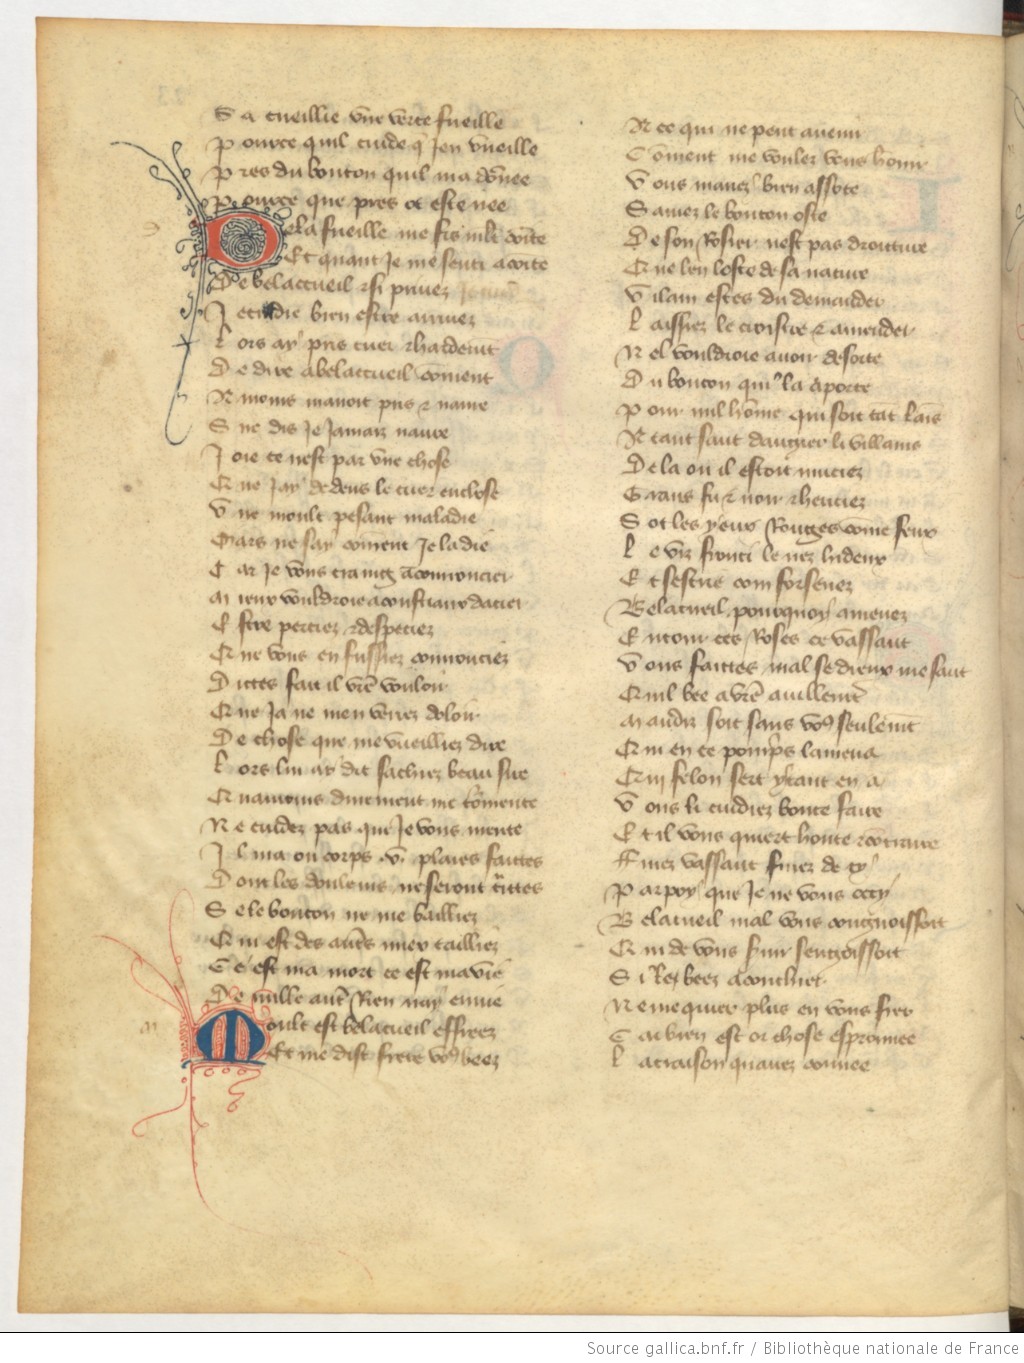 S a cueillie vne verte fueille
P ource quil cuide q̃ Jen vueille
P res du bouton quil ma dõnee
P ource que pres ot este nee
De la fueille me fis mlt cointe
Et quant Je me senti acointe
De belaccueil & si priuez
J e cuidie bien estre arriuez
L ors ay pris cuer & hardemt
De dire a belaccueil cõment
A mours mauoit pris & naure
S ire dis Je Jamaiz naure
J oie ce nest par vne chose
Et ne Jay dedens le cuer enclose
V ne moult pesant maladie
Mais ne say coment Je la die
C ar Je vous craing acourroucier
M ieux vouldroie a coustiaux dacier
E stre perciez & despeciez
Et ne vous en fussiez courrouciez
Dictes fait il vr̃e vouloir
Et ne Ja ne men verrez doloir
De chose que me vueilliez dire
L ors lui ay dit sachiez beau sire
Et namours durement me tormente
Ne cuidez pas que Je vous mente
J l ma ou corps .vi. plaies faittes
Dont les douleurs ne seront traittes
S e le bouton ne me bailliez
Et ui est des autres mieux tailliez
Ce est ma mort ce est ma vie
De nulle autr̃ Rien nay enuie
Moult est belacueil effreez
Et me dist frere vous beez
A ce qui ne peut auenir
Cõment me voulez vous hõnir
V ous mauez bien assote
S auiez le bouton oste
De son Rosier nest pas droiture
Et ne len loste de sa nature
V ilain estes du demander
L aissiez le croistre & amender
N el vouldroie auoir deserte
Du bouton qui la aporte
P our nul hõme qui soit tãt laĩs
A tant saut dangier li villains
De la ou il estoit muciez
G rans fu & noir & hericiez
S ot les yeux Rouges cõme feux
L e viz fronci le nez hideux
E t sescrie com forsenez
Belacueil pourquoy amenez
E ntour ces Roses ce vassaut
V ous faittes mal se dieux me saut
Et uil bee a vr̃e auillemt
M audiz soit sans vous seulemt
Et ui en ce pourpris lamena
Et ui felon sert ytant en a
V ous li cuidiez bonte faire
E t il vous quiert honte & cõtraire
Ffuiez vassaut fuiez de cy
P ar poy que Je ne vous occy
Belacueil mal vous congnoissoit
Et ui de vous seruir sengoissoit
S i les beez a conchier
Ne me quier plus en vous fier
C ar bien est or chose esprouuee
L a traison quauez couuee